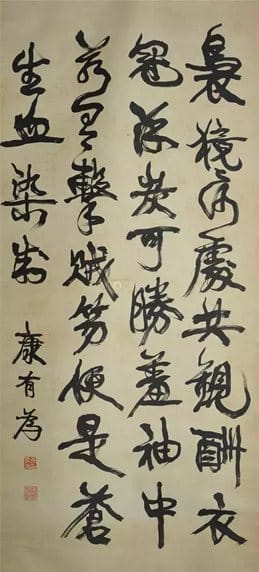 獍處共觀酬衣
冠塗炭可勝羞袖中
若有擊賊笏便是蒼
生血染
康有為